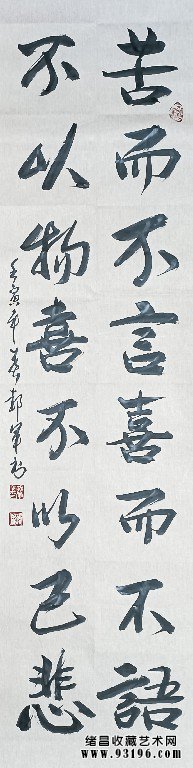 苦而不言喜而不語
不以物喜不以己悲
壬寅年春郭軍书
绪昌收藏艺术网
www.93196.com